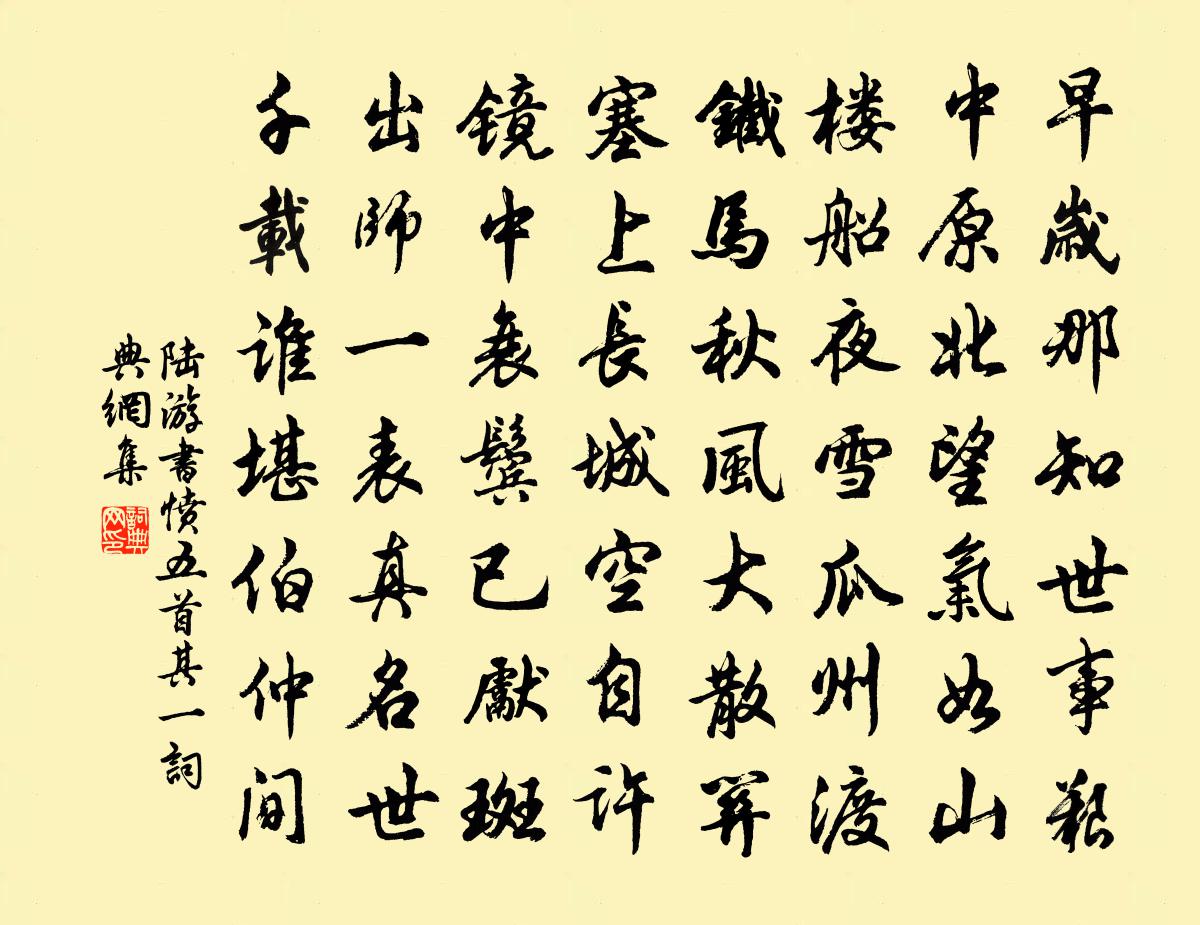 早歲那知世事艱
中原北望氣如山
楼船夜雪瓜州渡
鐵馬秋風大散関
塞上長城空自許
镜中衰鬓已獻斑
出師一表真名世
千載誰堪伯仲間
陆游書愤五首其一詞
典網集
詞典
网印